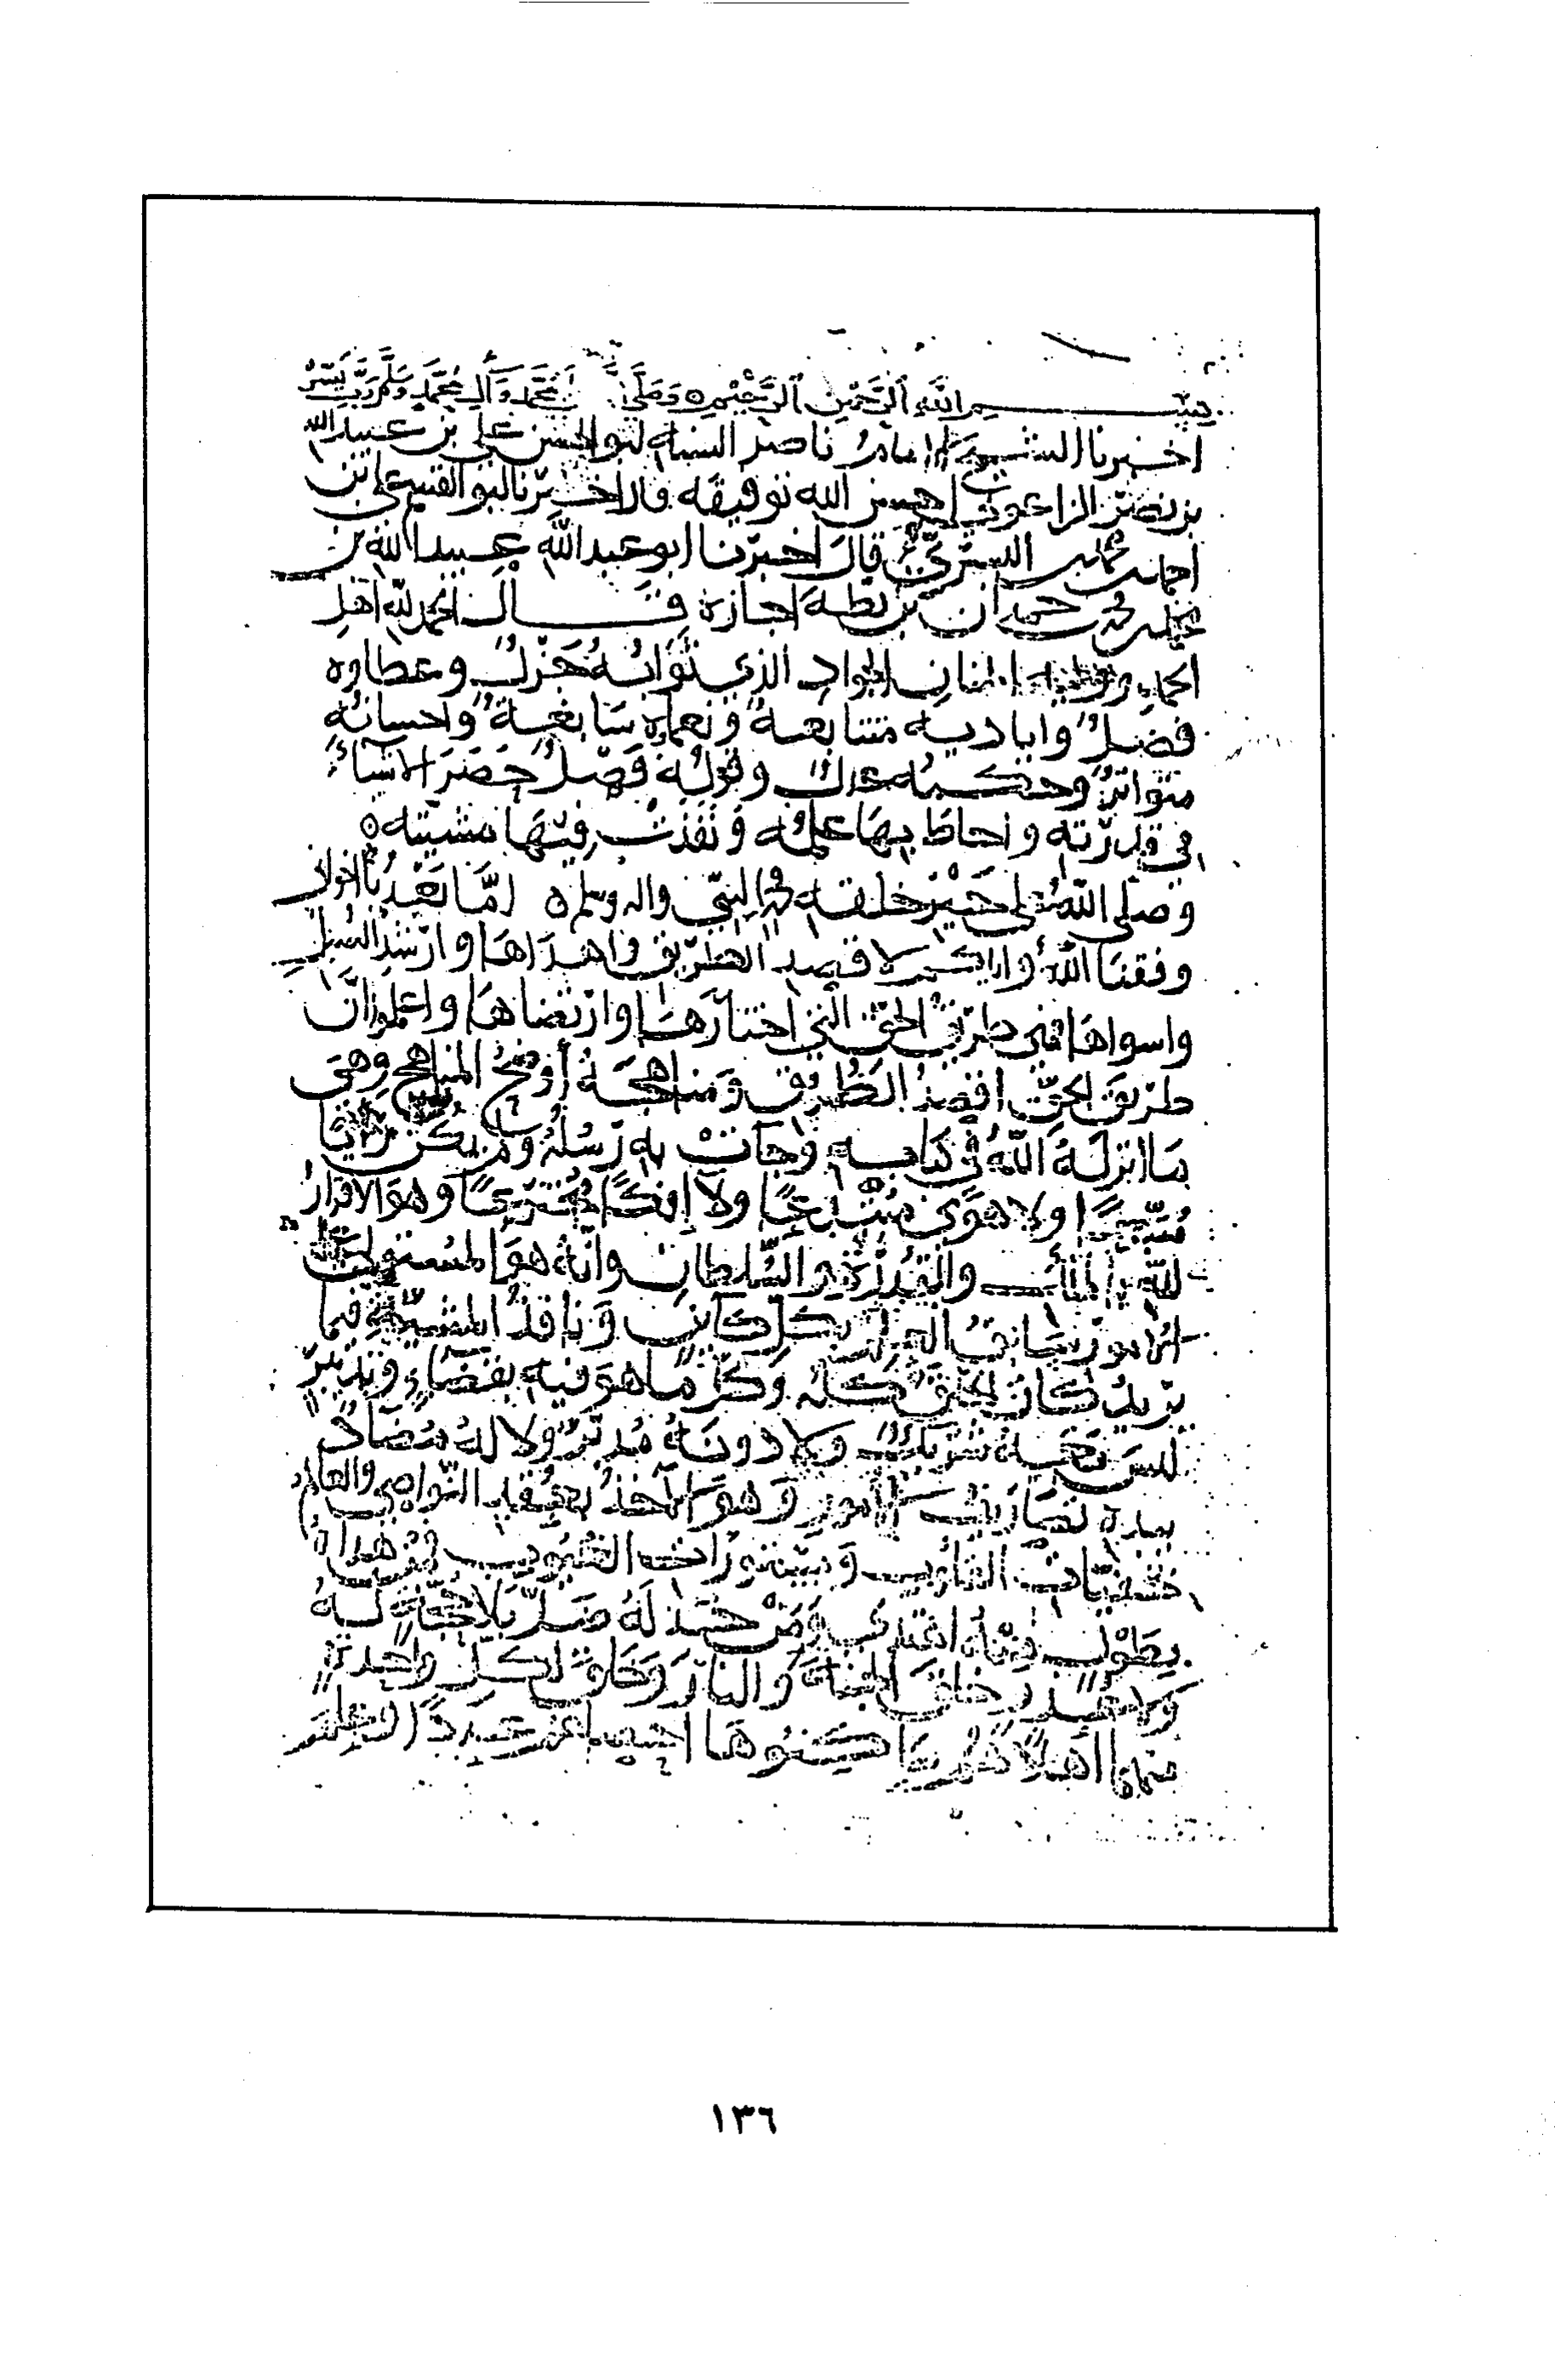 بسم الله الرحمن الرحيم وصلى محمد وآل محمد وسلم رب يسر
اخبرنا الشيخ الامام ناصر السنة ابو الحسن علي بن عبيد الله
بن نصر الزاغوني احسن الله توفيقه قال اخبرنا ابو القسم علي بن
احمد بن محمد بن البسري قال اخبرنا ابو عبد الله عبيد الله بن
محمد بن حمدان بن بطة اجازة قال الحمد لله اهل
الحمد المنان الجواد الذي ثوابه جزل وعطاوه
فضل واياديه متتابعة ونعماوه سابغة واحسانه
متواتر وحكمه عدل وقوله فصل حصر الاشياء
في قدرته واحاط بها علمه ونفذت فيها مشيته
وصلى الله على خير خلقه محمد النبي واله وسلم اما بعد يا اخواني
وفقنا الله واياكم لاقصد الطريق واهداها وارشد السبل
واسواها فهي طريق الحق التي اختارها وارتضاها واعلموا ان
طريق الحق اقصد الطريق ومناهجه أوضح المناهج وهي
ما انزله الله في كتابه وجات به رسله ولم يكن رايا
ولا هوى ولا إفكا مخترعا وهو الاقرار
لله بالملك والقدرة والسلطان وانه هو المستولي على
الامور سابق العلم بكل كائن ونافذ المشية فيما
يريد كان الخلق كله وكل ما هو فيه بقضاء وتدبير
ليس معه شريك ولا دونه مدبر ولا له مضاد
بيده تصاريف الأمور وهو الآخذ بعقد النواصي والعالم
بخفيات القلوب ومستورات الغيوب فمن هداه
بطول منه اهتدى ومن خذله ضل بلا حجة له
ولا عذر خلق الجنة والنار وخلق لكل واحدة
منهما أهلا هم ساكنوها
١٣٦